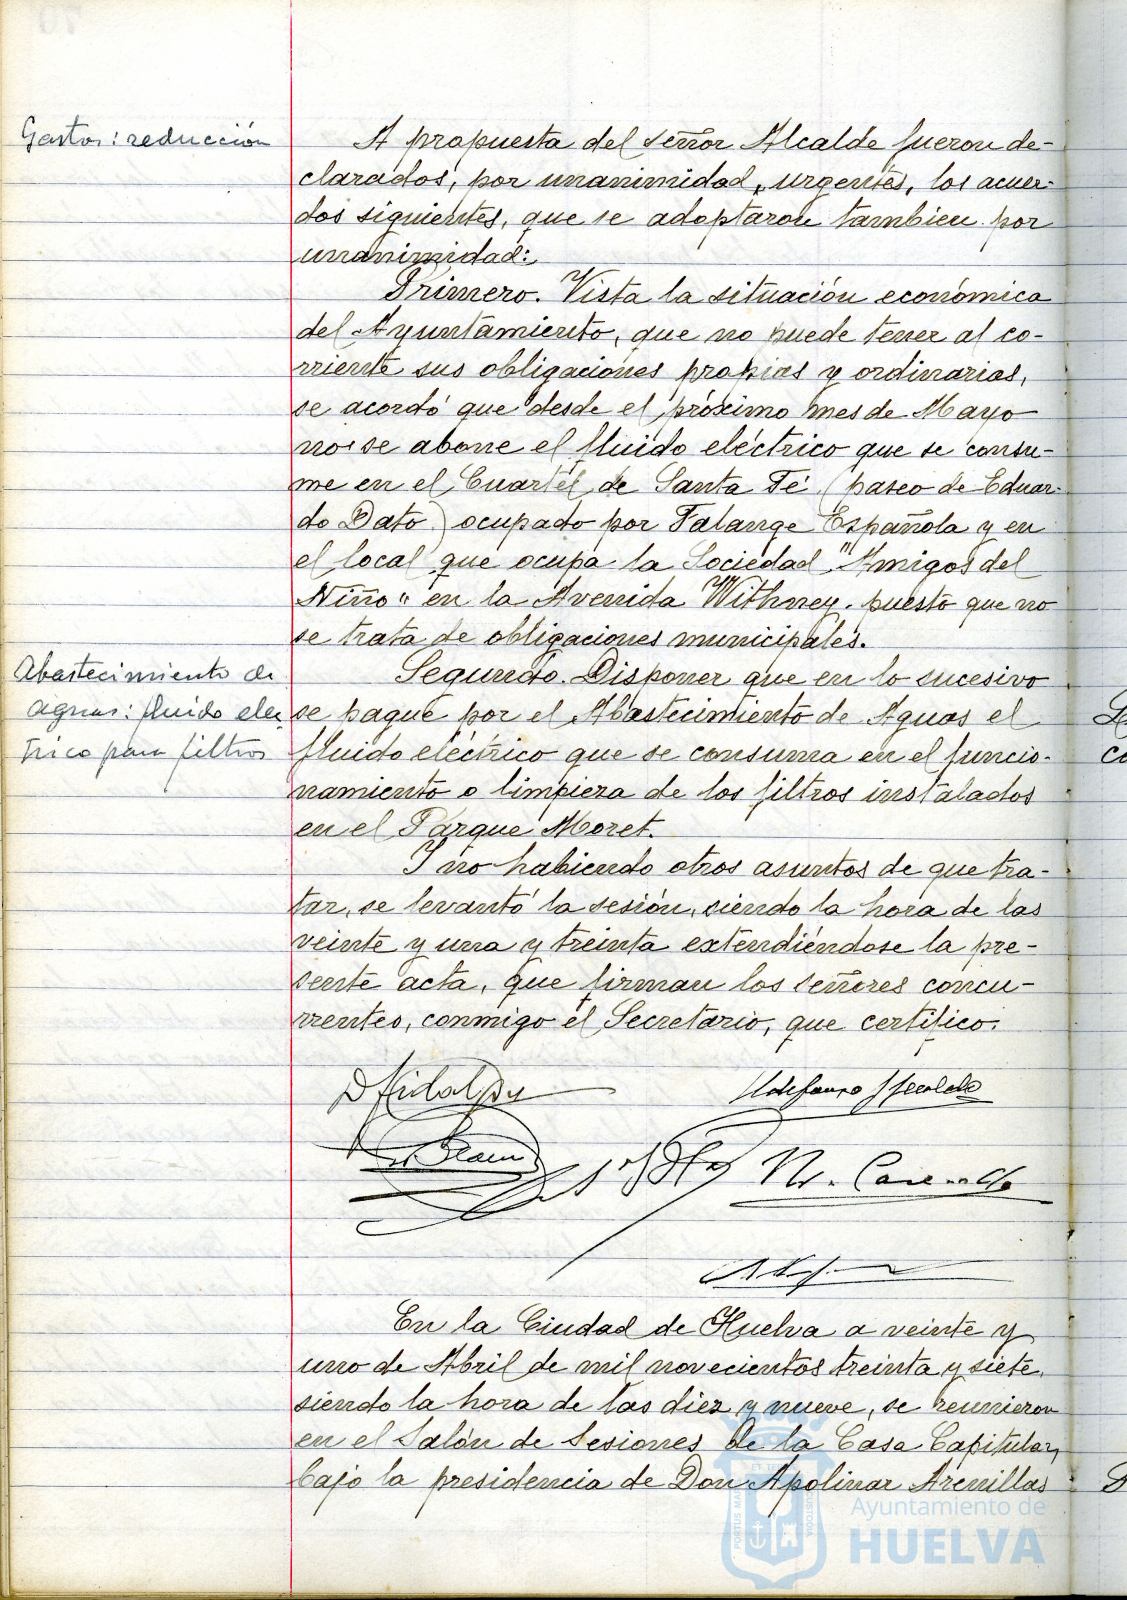 Gastos: reducción
A propuesta del señor Alcalde fueron de-
clarados, por unanimidad, urgentes, los acuer-
dos siguientes, que se adoptaron tambien por
unanimidad:
Primero. Vista la situación económica
del Ayuntamiento, que no puede tener al co-
rriente sus obligaciones propias y ordinarias,
se acordó que desde el próximo mes de Mayo
no se abone el fluido eléctrico que se consu-
me en el Cuartel de Santa Fé (paseo de Eduar-
do Dato) ocupado por Falange Española y en
el local que ocupa la Sociedad "Amigos del
Niño" en la Avenida Withney. puesto que no
se trata de obligaciones municipales.
Abastecimiento de
aguas: fluido elec
trico para filtros
Segundo. Disponer que en lo sucesivo
se pague por el Abastecimiento de Aguas el
fluido eléctrico que se consuma en el funcio-
namiento o limpieza de los filtros instalados
en el Parque Moret.
Y no habiendo otros asuntos de que tra-
tar, se levantó la sesión, siendo la hora de las
veinte y una y treinta extendiéndose la pre-
sente acta, que firman los señores concu-
rrentes, conmigo el Secretario, que certifico.
En la Ciudad de Huelva a veinte y
uno de Abril de mil novecientos treinta y siete,
siendo la hora de las diez y nueve, se reunieron
en el Salón de Sesiones de la Casa Capitular,
bajo la presidencia de Don Apolinar Arenillas
Ayuntamiento de
HUELVA